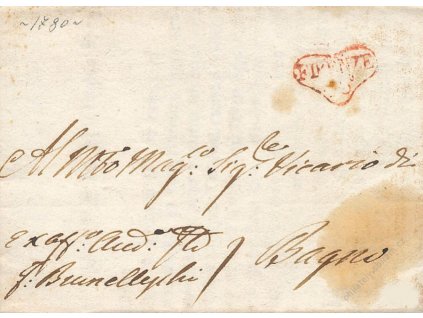 ~1780~
FIRENZE
Al Mto Mag.co Sig.re Vicario di
Bagno
ex off.o Aud.
f. Brunelleschi